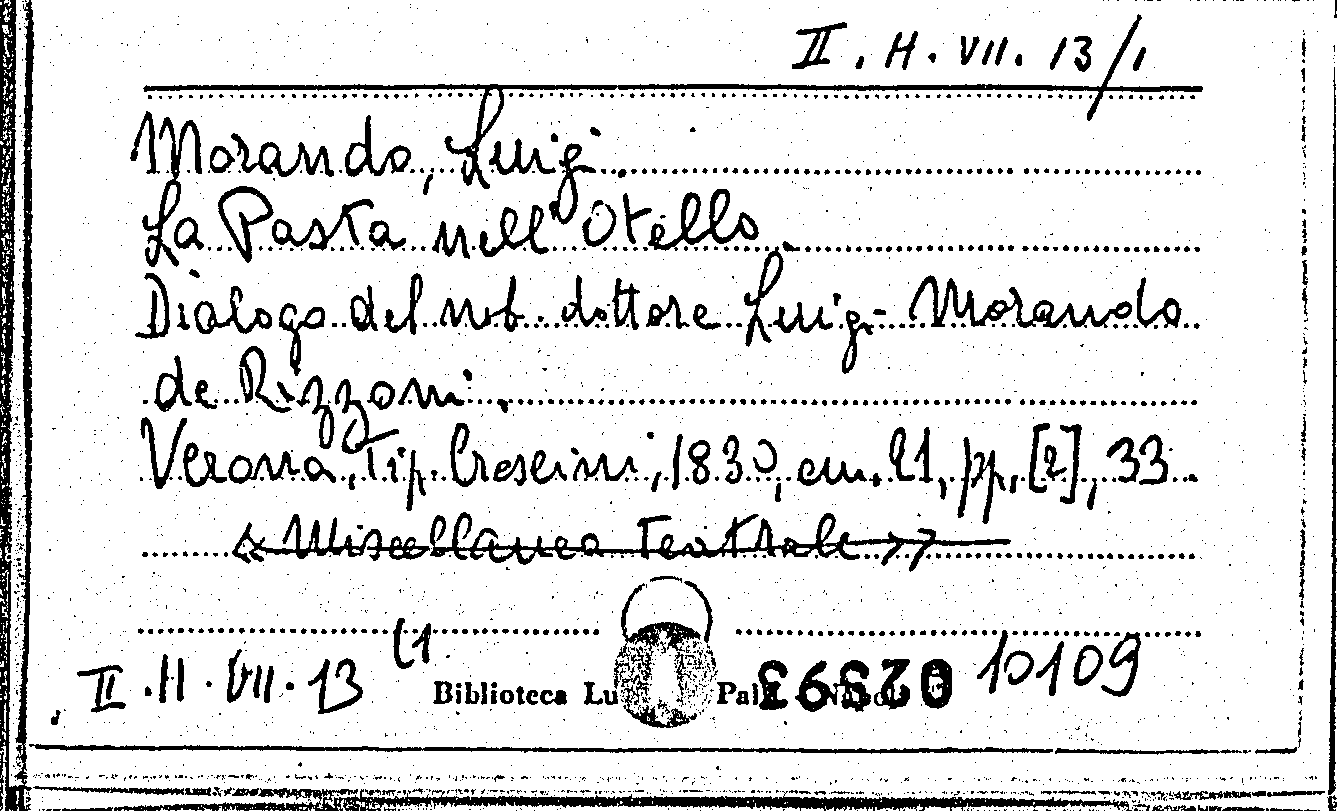 II. H. VII. 13/1
Morando, Luigi.
La Pasta nell'Otello.
Dialogo del nob. dottore Luigi Morando
de Rizzoni.
Verona, Tip. Crescini, 1830, cm. 21, pp. [2], 33.
«Miscellanea Teatrale»
II. H. VII. 13 (1
Biblioteca Lu Pal Napoli 02393 10109